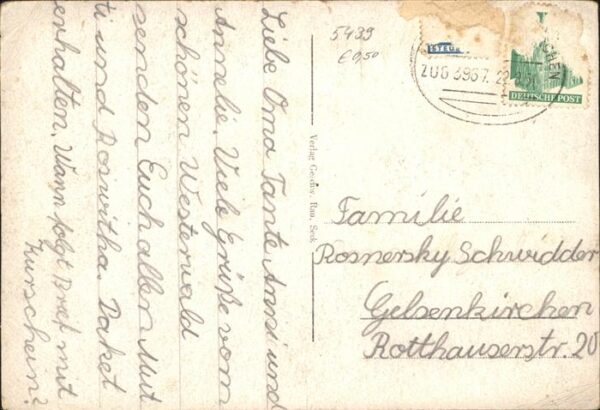 Liebe Oma Tante Anni und
Annelie. Viele Grüße vom
schönen Westerwald
senden Euch allen Mut
ti und Roswitha. Paket
erhalten. Wann folgt Brief mit
Kurschein?
5499
€ 0,50
STEU
ZUG 3967 22
CHEN
DEUTSCHE POST
Verlag Geschw. Rau, Seck
Familie
Rosnersky Schwidder
Gelsenkirchen
Rotthauserstr. 20